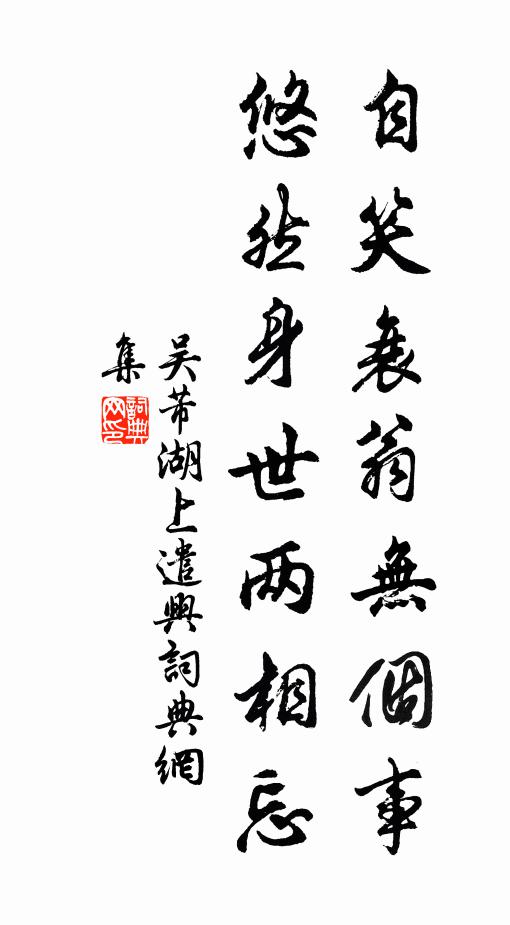 自笑衰翁無個事
悠然身世两相忘
吴芾湖上遣興詞典網
集
詞典网印